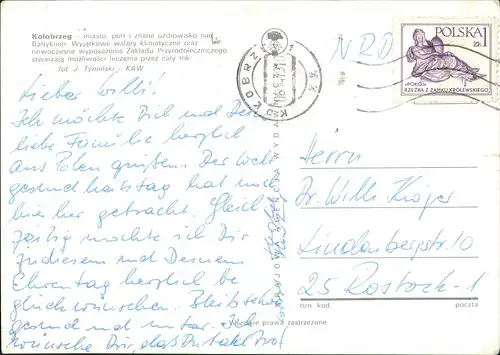 Kołobrzeg – miasto, port i znane uzdrowisko nad
Bałtykiem. Wyjątkowe walory klimatyczne oraz
nowoczesne wyposażenia Zakładu Przyrodoleczniczego
stwarzają możliwości leczenia przez cały rok
fot J. Tymiński – KAW
Lieber Willi!
Ich möchte Dich und Deine
liebe Familie herzlich
aus Polen grüßen. Der Welt
gesundheitstag hat mich
hier her gebracht. Gleich
zeitig möchte ich Dir
zu diesem und Deinem
Ehrentag herzlich be
glückwünschen. Bleib schön
gesund und munter. Ich
wünsche Dir, daß Du
KRAJOWA AGENCJA WYDAWNICZA
NRD
KOŁOBRZEG 1
POLSKA
ZŁ 1
«POKÓJ»
RZEŹBA Z ZAMKU KRÓLEWSKIEGO
Herrn
Dr. Willi Kröger
Lindenbergstr. 10
25 Rostock-1
ozn kod. poczta
Wszelkie prawa zastrzeżone